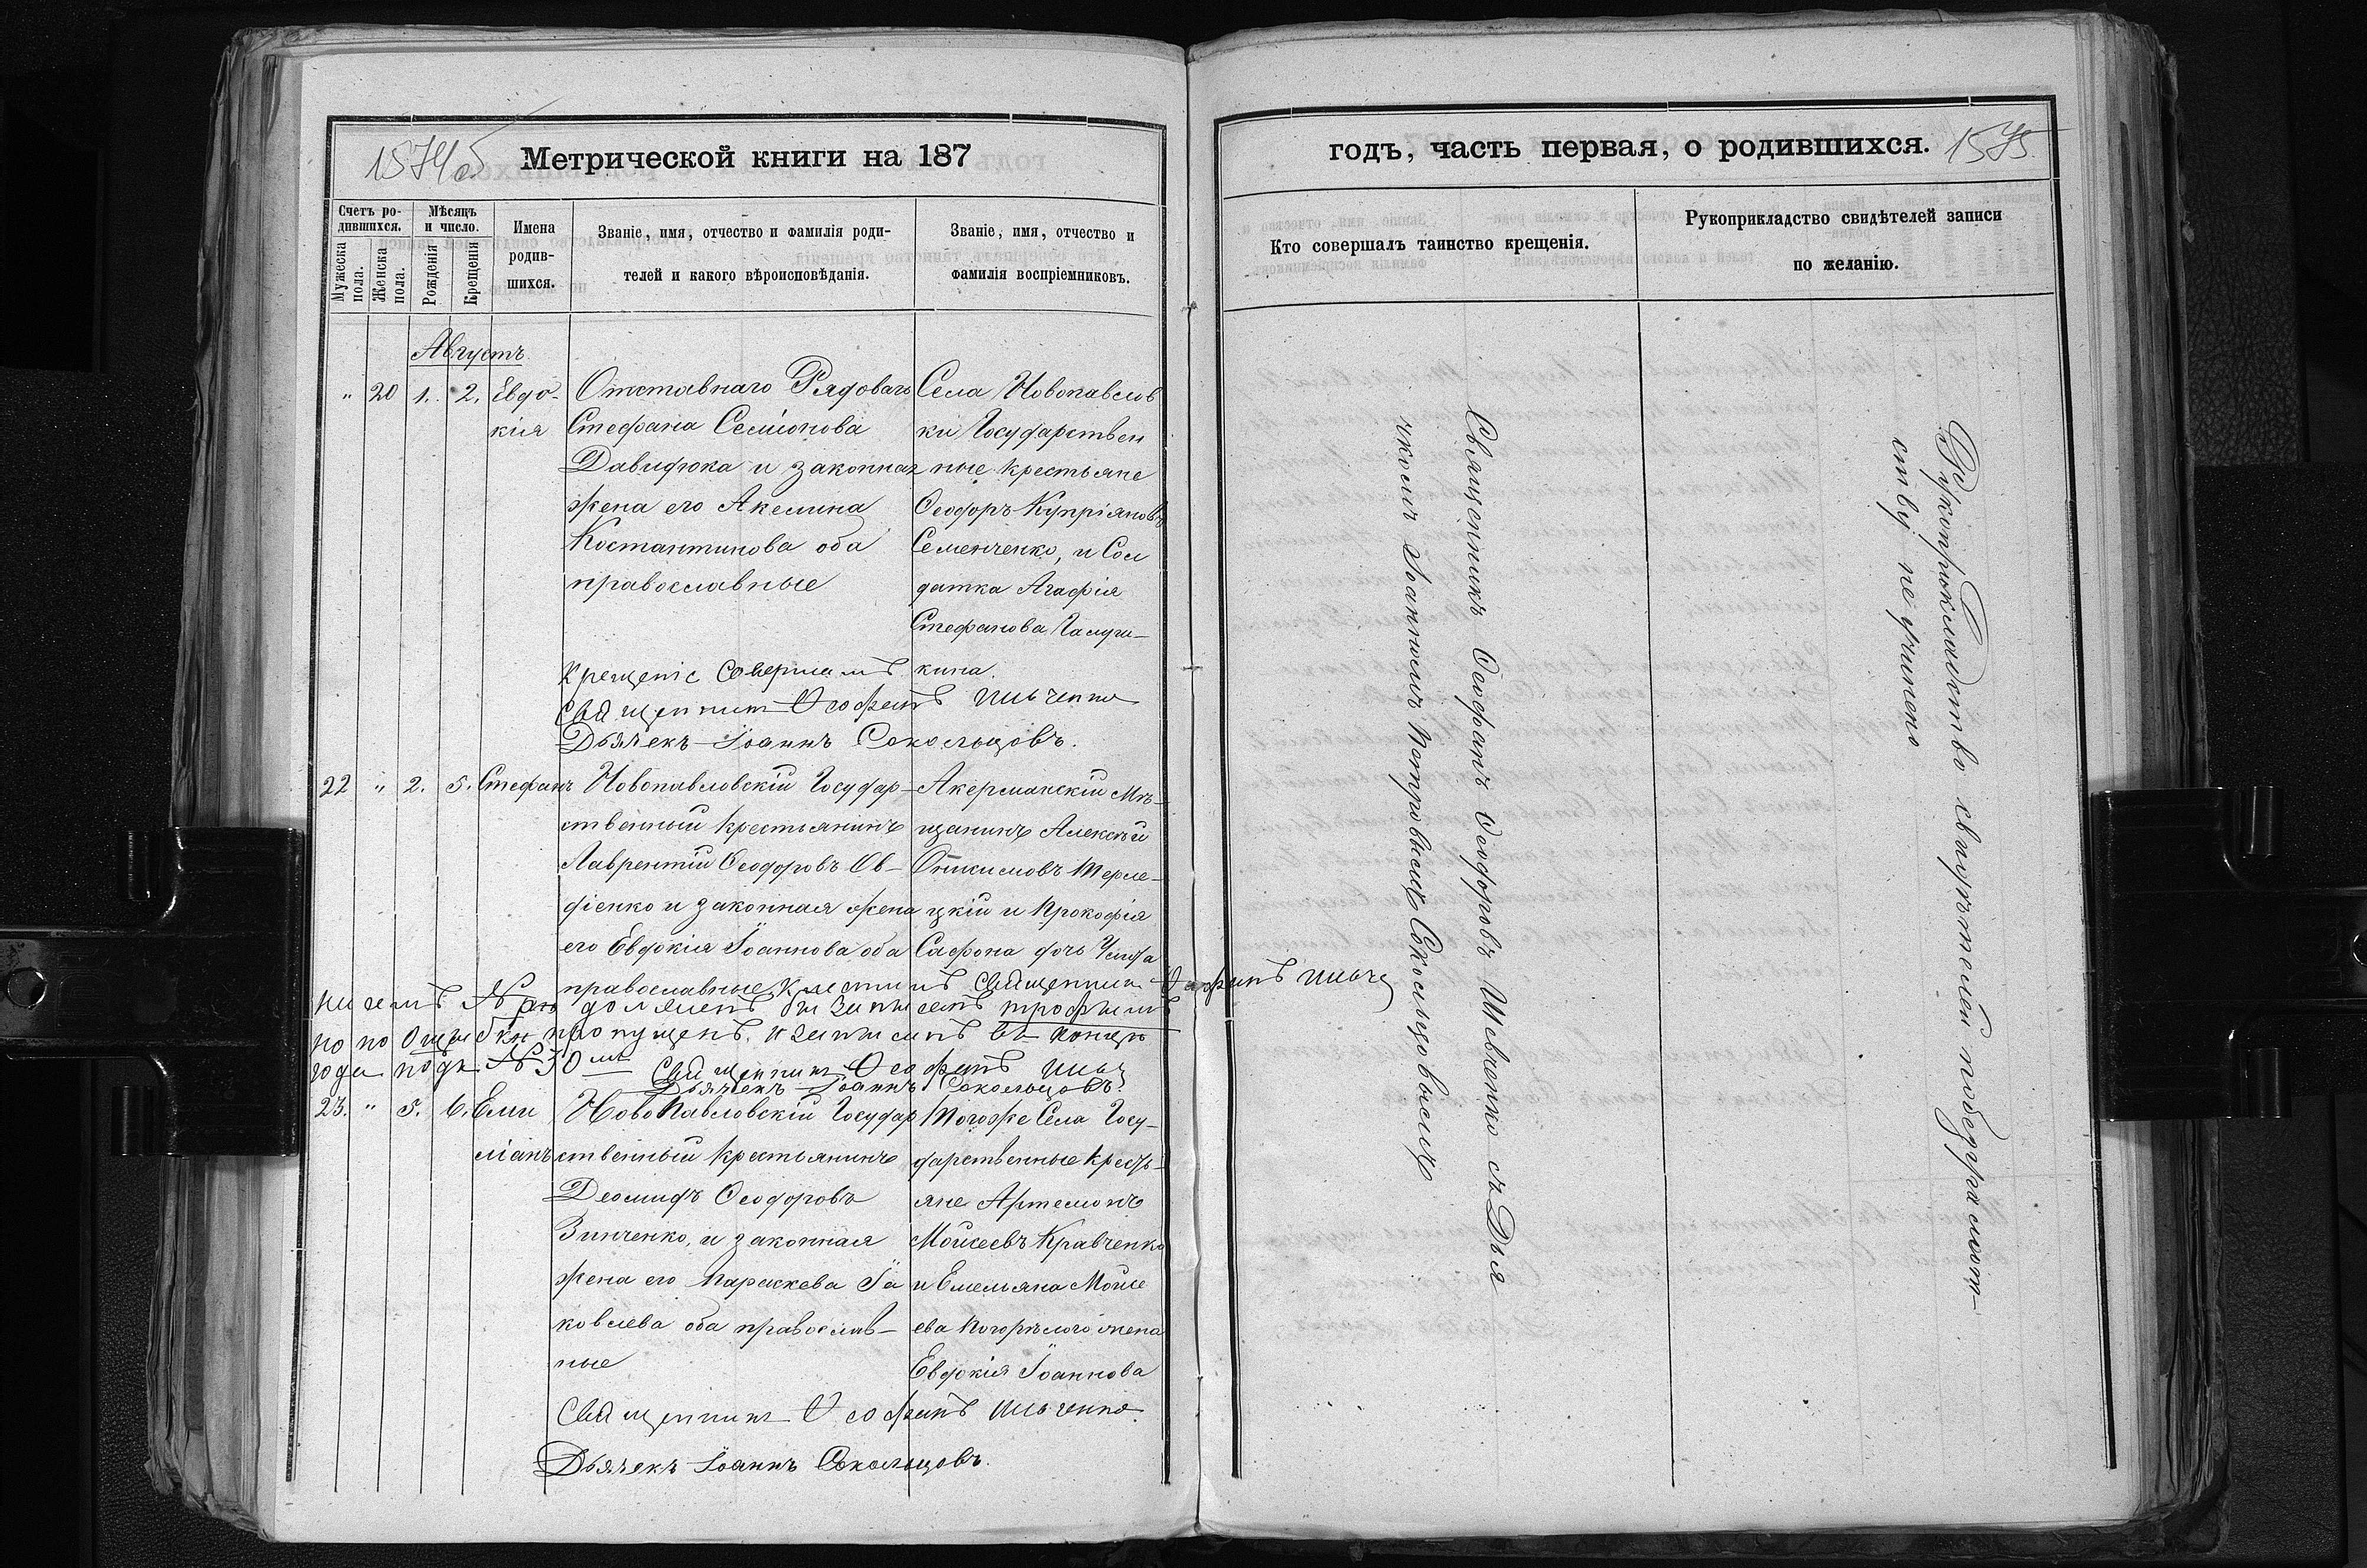 1574 об
Метрической книги на 187
Счетъ ро-
дившихся.
Мужеска
пола.
Женска
пола.
Мѣсяцъ
и число.
Рожденія
Крещенія
Имена
родив-
шихся.
Званіе, имя, отчество и фамилія роди-
телей и какого вѣроисповѣданія.
Званіе, имя, отчество и
фамилія воспріемниковъ.
Августъ
" 20 1. 2. Евдо-
кія
Отставнаго Рядоваго
Стефана Семіонова
Давидюка и законная
жена его Акелина
Костантинова оба
православные
Села Новопавлов
ки Государствен
ные крестьяне
Ѳеодоръ Купріяновъ
Семенченко, и Сол
датка Агафія
Стефанова
кина.
Крещеніе Совершалъ
Священник Ѳеофанъ
Дьячекъ Іоаннъ Сокольцовъ.
22 " 2. 5. Стефанъ
Новопавловскій Государ-
ственный крестьянинъ
Лаврентій Ѳеодоровъ Ов-
діенко и законная жена
его Евдокія Іоаннова оба
православные
Акерманскій Мѣ-
щанинъ Алексѣй
цкій и Прокофія
Сафона дочь
Крестилъ Священник Ѳеофанъ
должен бы записанъ трофимъ
но по Ошибки пропущенъ. и записанъ въ концѣ
года подъ № 30
Священник Ѳеофанъ
Дьячекъ Іоаннъ Сокольцовъ.
23. " 5. 6. Еми
ліанъ
НовоПавловскій Государ
ственный крестьянинъ
Деомидъ Ѳеодоровъ
Зинченко, и законная
жена его Параскева Іа
ковлева оба православ-
ные
Тогоже Села Госу-
дарственные Кресть-
яне Артемонъ
Моисеевъ Кравченко
и Емельяна Моисе
ева Погорѣлого жена
Евдокія Іоаннова
Священник Ѳеофанъ
Дьячекъ Іоаннъ Сокольцовъ.
годъ, часть первая, о родившихся.
1575.
Кто совершалъ таинство крещенія.
Рукоприкладство свидѣтелей записи
по желанію.
Священникъ Ѳеофанъ Ѳеодоровъ съ Дья
чкомъ Іоанномъ Петровымъ Сокольцовымъ
Рукоприкладство свидѣтелей
ству не учинено